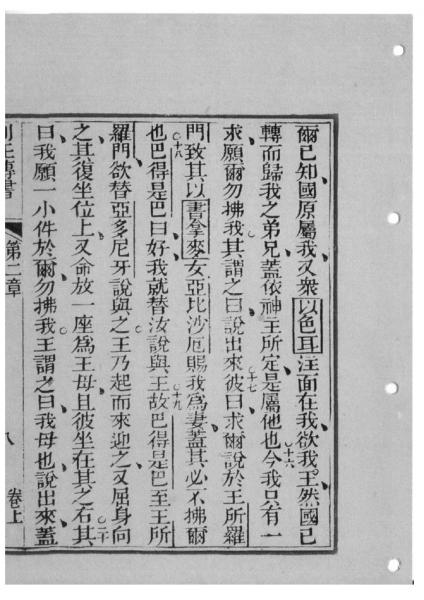 爾已知國原屬我又衆以色耳注面在我欲我王然國已
轉而歸我之弟兄蓋依神主所定是屬他也○十六今我只有一
求願爾勿拂我其謂之曰說出來○十七彼曰求爾說於王所羅
門致其以書拿麥女亞比沙厄賜我爲妻蓋其必不拂爾
也○十八巴得是巴曰好我就替汝說與王○十九故巴得是巴至王所
羅門欲替亞多尼牙說與之王乃起而來迎之又屈身向
之其復坐位上又命放一座爲王母且彼坐在其之右○二十其
曰我願一小件於爾勿拂我王謂之曰我母也說出來蓋
書 第二章 八 卷上